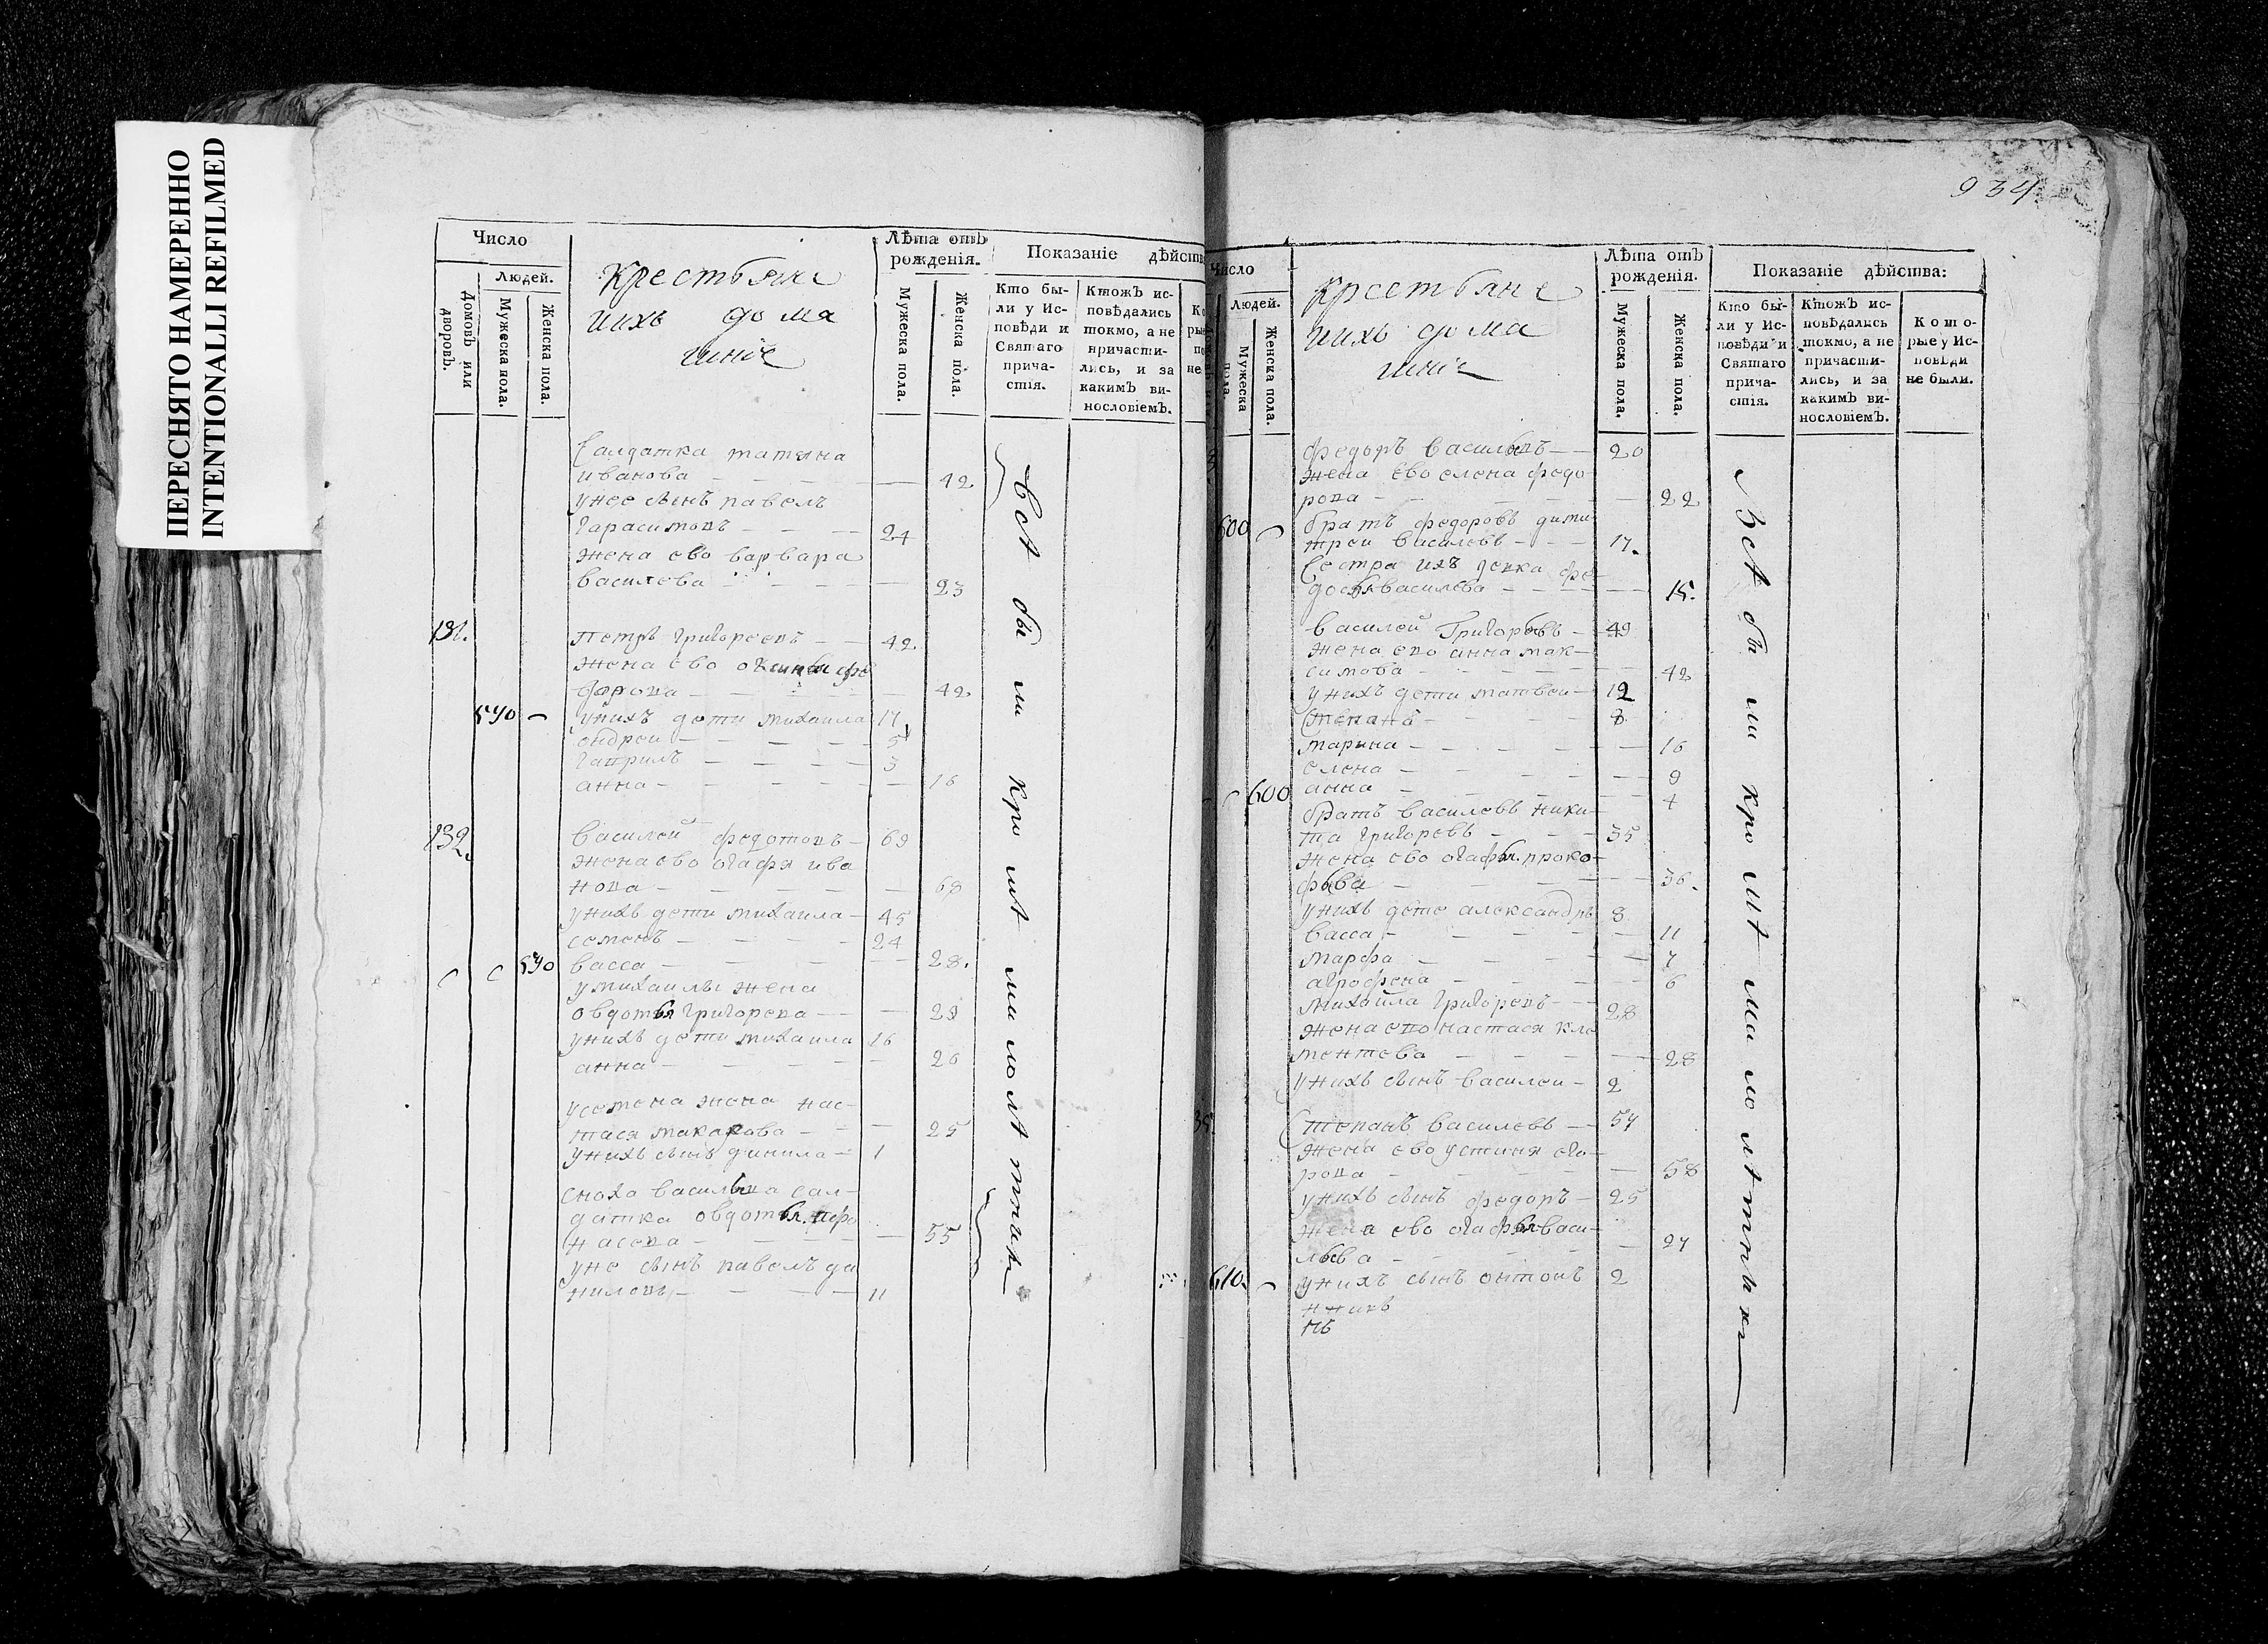 ПЕРЕСНЯТО НАМЕРЕННО
INTENTIONALLI REFILMED
Число
Людей.
Домовъ или дворовъ.
Мужеска пола.
Женска пола.
Крестьяне
иихъ дома
шніе
Лѣта отъ
рожденія.
Мужеска пола.
Женска пола.
Показаніе дѣйств
Кто бы-
ли у Ис-
повѣди и
Святаго
прича-
стія.
Ктожъ ис-
повѣдались
токмо, а не
причасти-
лись, и за
какимъ ви-
нословіемъ.
Салдатка татьяна
иванова — 42
унее сынъ павелъ
гарасимовъ — 24
жена ево варвара
василева — 23
131. Петръ григореевъ — 42
жена ево оксинья фе
дорова — 42
590 унихъ дети михаила 17
ондреи — 5
гаврилъ — 3
анна — 16
132. Василеи федотовъ — 69
жена ево огафя ива
нова — 68
унихъ дети михаила — 45
семенъ — 24
590 васса — 28.
умихаилы жена
овдотья григорева — 29
унихъ дети михаила 16
анна — 20
усемена жена нас-
тася макарова — 25
унихъ сынъ данила — 1
сноха василева сал-
датка овдотья
насева — 55
уне сынъ павелъ да
ниловъ — 11
всѣ были кромѣ малолѣтныхъ
934
Число
Людей.
Мужеска пола.
Женска пола.
Крестьяне
иихъ дома
шніе
Лѣта отъ
рожденія.
Мужеска пола.
Женска пола.
Показаніе дѣйства:
Кто бы-
ли у Ис-
повѣди и
Святаго
прича-
стія.
Ктожъ ис-
повѣдались
токмо, а не
причасти-
лись, и за
какимъ ви-
нословіемъ.
Кото-
рые у Ис-
повѣди
не были.
федоръ василевъ — 20
жена ево елена федо-
рова — 22
600 братъ федоровъ дими-
треи василевъ — 17.
сестра ихъ девка фе-
досья василева — 15.
василеи григоревъ — 49
жена ево анна мак-
симова — 42
унихъ дети матвеи — 12
степанъ — 8
марина — 16
елена — 9
600 анна — 4
братъ василевъ ники-
та григоревъ — 35
жена ево огафья проко-
фьва — 36.
унихъ дете александръ 8
васса — 11
марфа — 7
аграфена — 6
михаила григоревъ — 28
жена ево настася кле
ментева — 28
унихъ сынъ василеи — 2
степанъ василевъ — 57
жена ево устиня его-
рова — 58
унихъ сынъ федоръ — 25
жена ево огафья васи-
льва — 27
610. унихъ сынъ онтонъ 2
Всѣ были кромѣ малолѣтныхъ